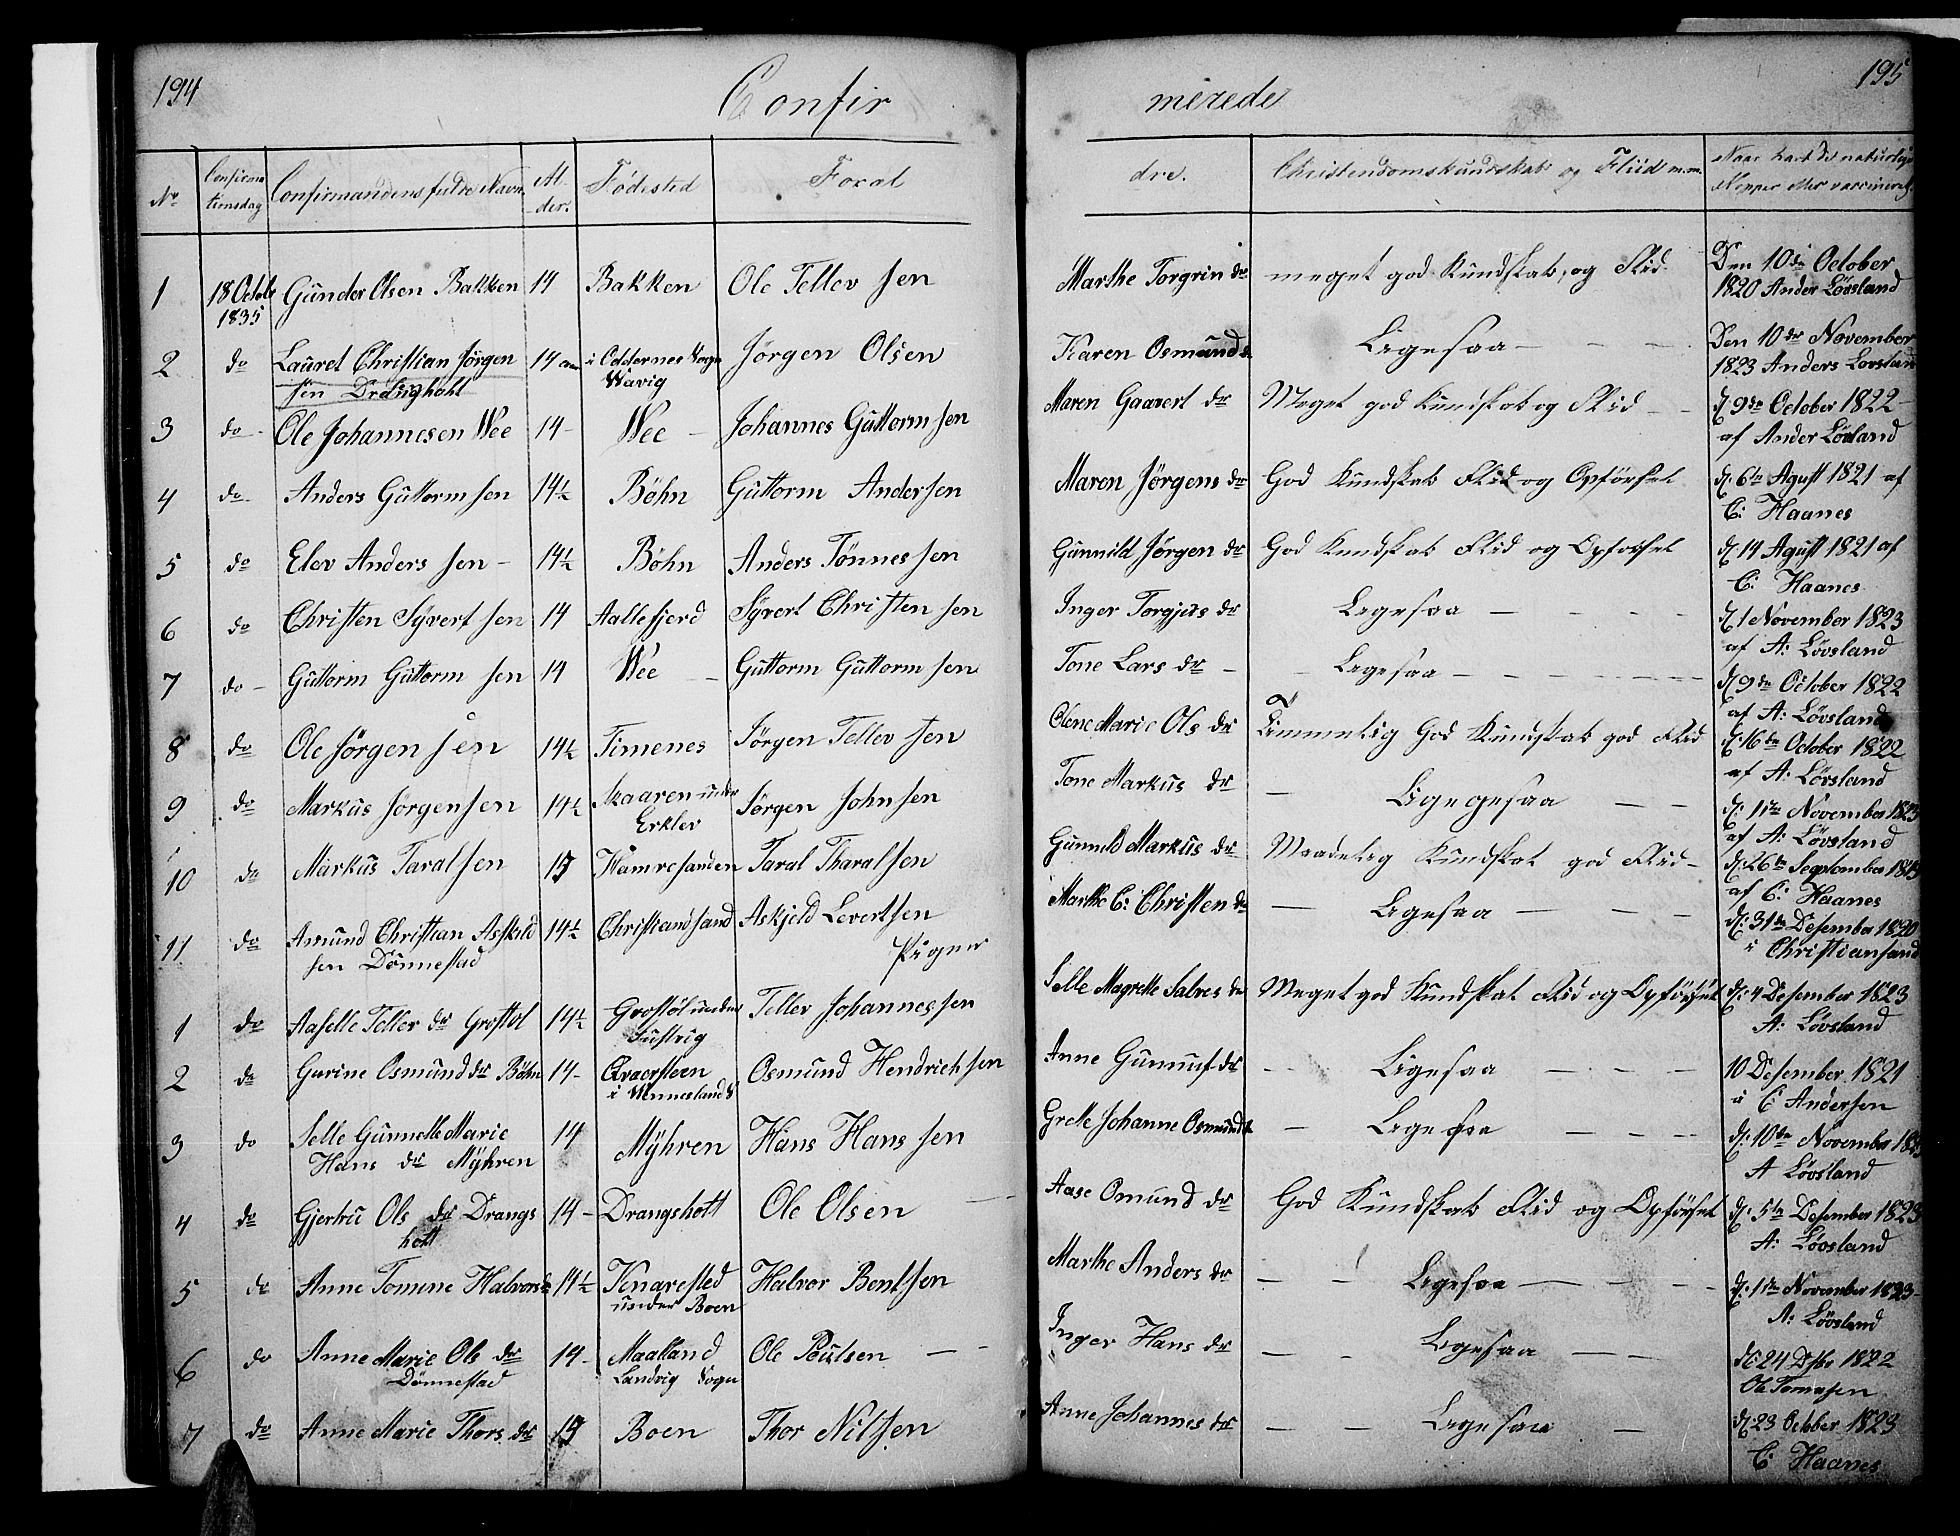 194
Confir
merede
195
No
Confirma
tionsdag
Confirmandens fulde Navn
Al-
der.
Fødested
Foræl
dre.
Christendomskundskab og Fliid m.m.
Naar havt de naturlige
Kopper eller vaccineret.
1 18 Octob Gunder Olsen Bakken 14 Bakken Ole Tellev sen Marthe Torgrin dr meget god Kundskab, og Flid. Den 10de October
1835 1820 Ander Løvsland
2 do Lauret Christian Jørgen 14 i Oddernes Sogn Jørgen Olsen Karen Osmunds Ligesaa — — — Den 10de November
sen Drangholt Wavig 1823 Anders Lovslan
3 do Ole Johannesen Wee 14 - Wee - Johannes Guttorm sen Maren Gaarert dr Meget god Kundskab og Flid - d 9de October 1822
af Ander Løvland
4 do Anders Guttorm sen 14½ Bøhn Guttorm Andersen Maren Jørgens dr God Kundskab Flid og Opførsel d. 6te Agust 1821 af
C: Haanes
5 do Elev Anders sen - 14½ Bøhn Anders Tønnes sen Gunnild Jørgen dr God Kundskab Flid og Opførsel d. 14 Agust 1821 af
C: Haanes
6 do Christen Syvert sen 14 Aallefjerd Syvert Christen sen Inger Torgjus dr Legesaa — — — d. 1 November 1823
af A: Løvsland
7 do - Guttorm Guttorm sen 14 Wee - Guttorm Guttorm sen Tone Lars dr - - Legesaa — — — d 9de October 1822
af A: Løvsland
8 do Ole Jørgen sen 14½ Timenes Jørgen Tellev sen Olene Marie Ols dr Timmelig God Kundskab god Flid d. 16de October 1822
af A: Løvsland
9 do Markus Jørgensen 14½ Skaaren under Jørgen John sen Tone Markus dr — Ligegesaa — — d: 1ste November 1823
Erklev af A: Løvsland
10 do Markus Taralsen 15 Hamresanden Taral Tharalsen Gunnild Markus dr Maadelig Kundskab god Flid - d: 26te September
af C: Haanes
11 do Amund Christian Askild 14½ Christiandsand Askjeld Levertsen Marthe C: Christen dr — Legesaa — — d: 31te Desember 1820
sen Dönnestad i Christiansand
Piger
1 do Aaselle Tellev dr Grostøl 14½ Grostøl under Tellev Johannessen Selle Magrette Salves dr Meget god Kundskab Flid og Opførsel d: 4 Desember 1823
Justvig A: Løvsland
2 do Gurine Osmund dr Böhn 14 - Qvarsteen Osmund Hendrich sen Anne Gunnuf dr — — Ligesaa — — 10 Desember 1821
i Vennesland S C Andersen
3 do Selle Gunnelle Marie 14 Mÿhren Hans Hans sen Grete Johanne Osmunds — Legesaa — — d: 10de November
Hans dr Mÿhren A Løvsland
4 do Gjertru Ols dr Drangs 14 - Drangsholt Ole Olsen — Aase Omund dr God Kundskab Flid og Opførsel d: 5te Desember 1823
holt A: Løvsland
5 do Anne Tomine Halvors 14½ Knarested Halvor Bentsen Marthe Anders dr — — Legesaa — — d: 1ste November 1823
under Boen A: Løvsland
6 do Anne Marie Ols dr 14 - Maalland Ole Poulsen — - Inger Hans dr — — Legesaa — — d: 24 Desbr 1822
Dönnestad Landvig Sogn Ole Tomasen
7 do Anne Marie Thors dr 15 Boen Thor Nilsen Anne Johannes dr — — Legesaa — d: 23 October 1823
C: Haanes